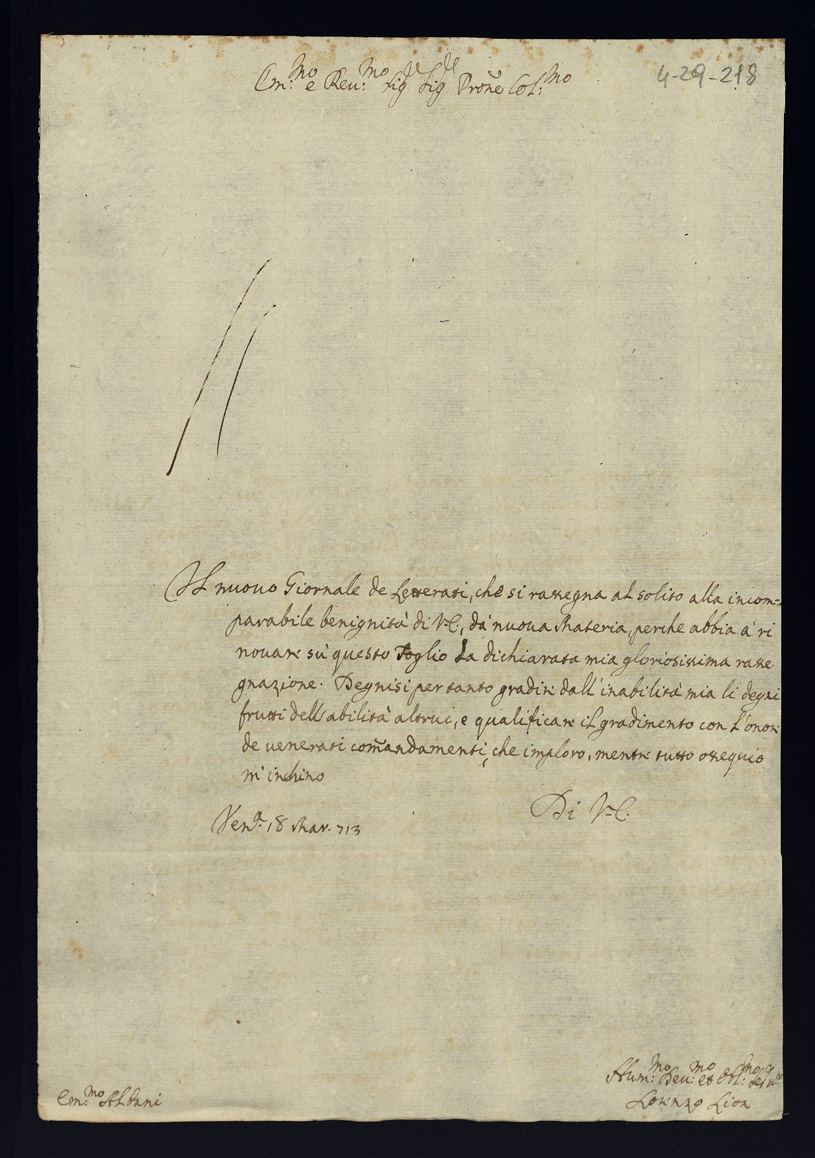 Em:mo e Reu:mo Sigre Sigre Prone Col:mo
4-29-218
Il nuouo Giornale de Letterati, che si rassegna al solito alla incom=
parabile benignità di V.E., dà nuoua Materia, perche abbia à ri
nouare sù questo Foglio La dichiarata mia gloriosissima rasse
gnazione. Degnisi pertanto gradire dall'inabilità mia li degni
frutti dell'abilità altrui, e qualificare il gradimento con L'onore
de uenerati comandamenti, che imploro, mentre tutto ossequio
m'inchino
Di V.E.
Vena. 18 Mar. 713
Hum:mo Deu:mo et Obl:mo Serure
Em:mo Albani
Lorenzo Lion